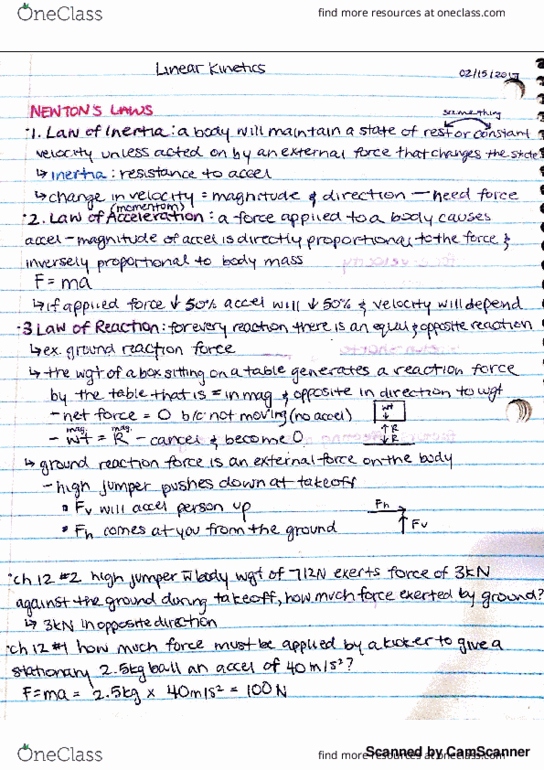 OneClass
find more resources at oneclass.com
Linear Kinetics
02/15/2017
NEWTON'S LAWS
same thing
·1. Law of Inertia: a body will maintain a state of rest or constant
velocity unless acted on by an external force that changes the state
↳ inertia: resistance to accel
↳ change in velocity = magnitude & direction — need force
(momentum)
·2. Law of Acceleration: a force applied to a body causes
accel - magnitude of accel is directly proportional to the force &
inversely proportional to body mass
F = ma
↳ if applied force ↓ 50% accel will ↓ 50% & velocity will depend
·3 Law of Reaction: for every reaction there is an equal & opposite reaction
↳ ex. ground reaction force
↳ the wgt of a box sitting on a table generates a reaction force
by the table that is = in mag & opposite in direction to wgt
- net force = 0 b/c not moving (no accel)
wt
mag. mag.
- wt = R - cancel & become 0
↑R
↓R
↳ ground reaction force is an external force on the body
- high jumper pushes down at takeoff
• Fv will accel person up
Fh
• Fh comes at you from the ground
↑Fv
·ch 12 #2 high jumper w̅ body wgt of 712N exerts force of 3KN
against the ground during takeoff, how much force exerted by ground?
↳ 3KN in opposite direction
·ch 12 #1 how much force must be applied by a kicker to give a
stationary 2.5kg ball an accel of 40m/s²?
F=ma = 2.5kg × 40m/s² = 100N
OneClass
find more resources at oneclass.com
Scanned by CamScanner